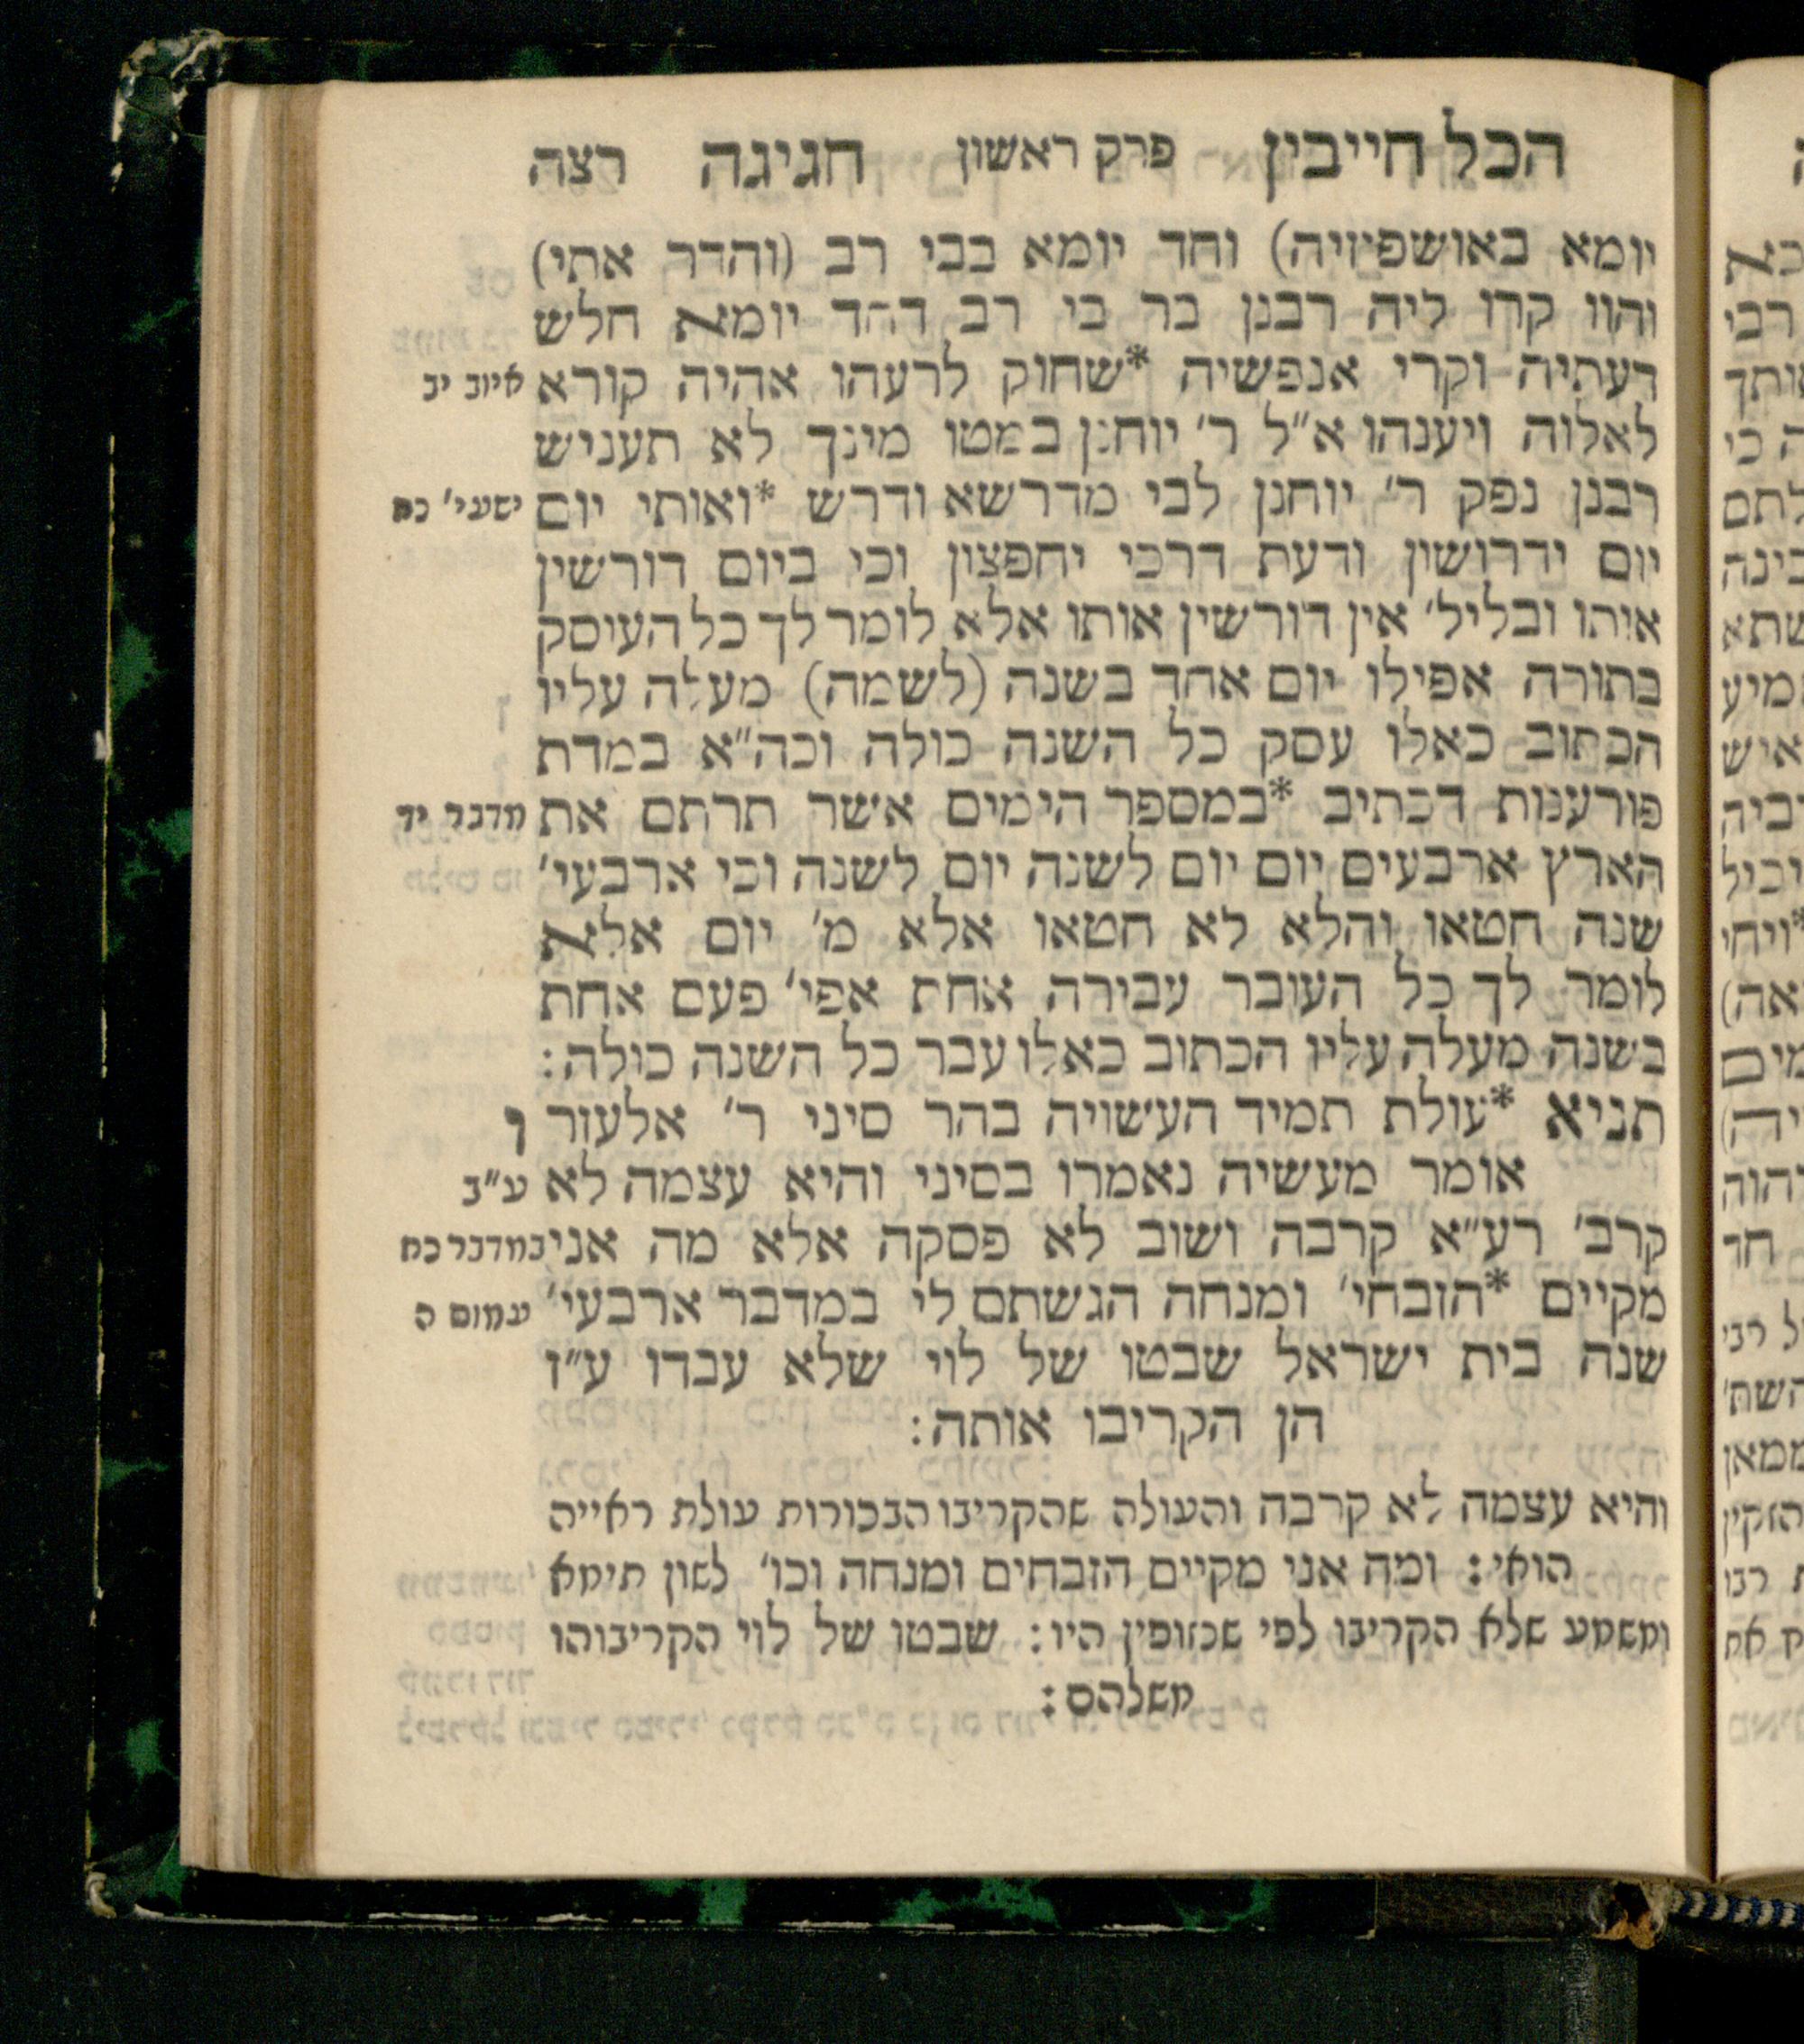 הכל חייבין פרק ראשון חגיגה רצה
יומא באושפיזיה) וחד יומא בבי רב (והדר אתי)
והוו קרו ליה רבנן בר בי רב דחד יומא חלש
דעתיה וקרי אנפשיה *שחוק לרעהו אהיה קורא איוב יב
לאלוה ויענהו א״ל ר׳ יוחנן במטו מינך לא תעניש
רבנן נפק ר׳ יוחנן לבי מדרשא ודרש *ואותי יום ישעי׳ נח
יום ידרושון ודעת דרכי יחפצון וכי ביום דורשין
אותו ובליל׳ אין דורשין אותו אלא לומר לך כל העוסק
בתורה אפילו יום אחד בשנה (לשמה) מעלה עליו
הכתוב כאלו עסק כל השנה כולה וכה״א במדת
פורענות דכתיב *במספר הימים אשר תרתם את מדבר יד
הארץ ארבעים יום יום לשנה יום לשנה וכי ארבעי׳
שנה חטאו והלא לא חטאו אלא מ׳ יום אלא
לומר לך כל העובר עבירה אחת אפי׳ פעם אחת
בשנה מעלה עליו הכתוב כאלו עבר כל השנה כולה:
תניא *עולת תמיד העשויה בהר סיני ר׳ אלעזר ו
אומר מעשיה נאמרו בסיני והיא עצמה לא ע״ב
קרב׳ רע״א קרבה ושוב לא פסקה אלא מה אני במדבר כח
מקיים *הזבחי׳ ומנחה הגשתם לי במדבר ארבעי׳ עמוס ה
שנה בית ישראל שבטו של לוי שלא עבדו ע״ז
הן הקריבו אותה:
והיא עצמה לא קרבה והעולה שהקריבו הבכורות עולת ראייה
הואי: ומה אני מקיים הזבחים ומנחה וכו׳ לשון תימא
ומשמע שלא הקריבו לפי שכזופין היו: שבטו של לוי הקריבוהו
משלהם: